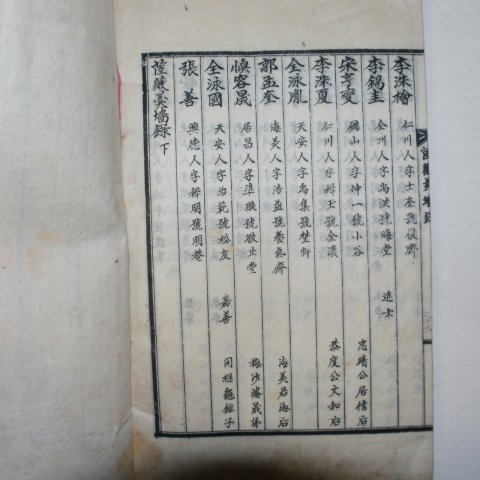 李洙檜 仁川人字士奎號俊齋
李錫圭 全州人字禹洪號晦堂 進士 忠靖公居信后
宋亨燮 礪山人字仲一號小谷
李洙夏 仁川人字 玉號金溪 恭度公文和后
全泳胤 天安人字禹集號楚軒
郭孟奎 海美人字浩益號養氣齋 海美君海后
愼容晟 居昌人字準璇號敬止堂 梅沙 晟弟
全泳國 天安人字治範號松友 嘉善
張善 興德人字 明號明菴 同樞龜鉉子
蔎羹墻錄下